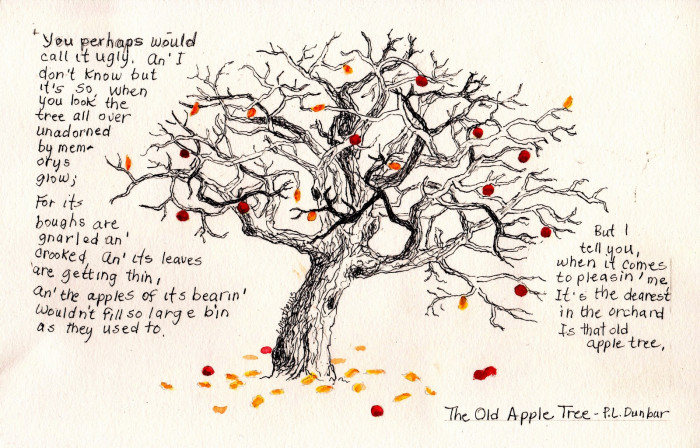 "You perhaps would
call it ugly. An' I
don't know but
it's so, when
you look the
tree all over
unadorned
by mem-
orys
glow;
For its
boughs are
gnarled an'
crooked, an' its leaves
are getting thin,
An' the apples of its bearin'
wouldn't fill so large a bin
as they used to.
But I
tell you,
when it comes
to pleasin' me
It's the dearest
in the orchard
Is that old
apple tree,
The Old Apple Tree - P.L. Dunbar